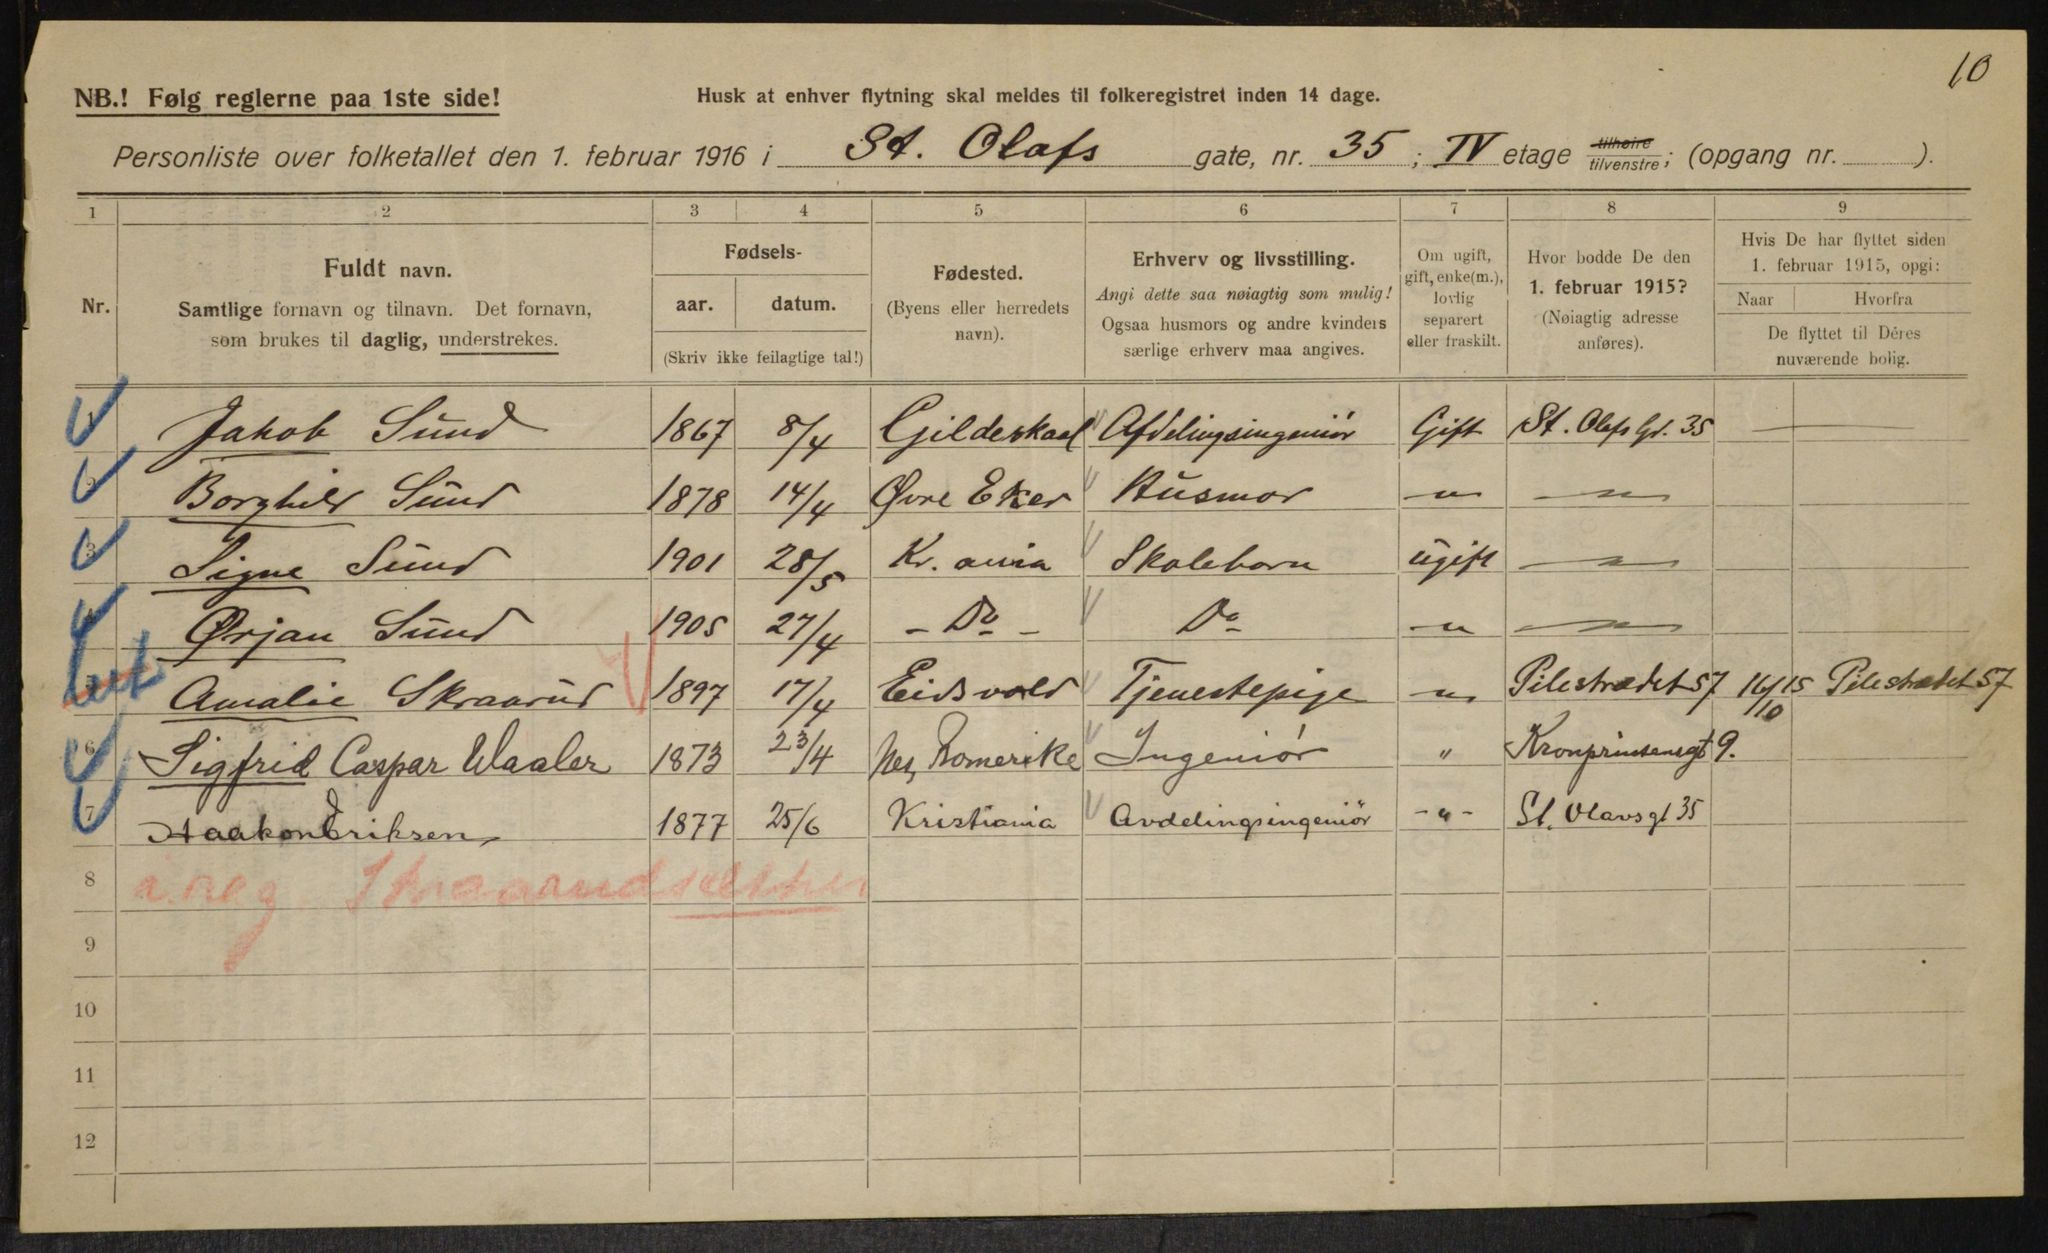 10
NB.! Følg reglerne paa 1ste side! Husk at enhver flytning skal meldes til folkeregistret inden 14 dage.
Personliste over folketallet den 1. februar 1916 i St. Olafs gate, nr. 35; IV etage tilhøire tilvenstre; (opgang nr. ).
1 2 3 4 5 6 7 8 9
Nr.
Fuldt navn.
Samtlige fornavn og tilnavn. Det fornavn,
som brukes til daglig, understrekes.
Fødsels-
aar. datum.
(Skriv ikke feilagtige tal!)
Fødested.
(Byens eller herredets
navn).
Erhverv og livsstilling.
Angi dette saa nøiagtig som mulig!
Ogsaa husmors og andre kvinders
særlige erhverv maa angives.
Om ugift,
gift, enke(m.),
lovlig
separert
eller fraskilt.
Hvor bodde De den
1. februar 1915?
(Nøiagtig adresse
anføres).
Hvis De har flyttet siden
1. februar 1915, opgi:
Naar Hvorfra
De flyttet til Deres
nuværende bolig.
1 Jakob Sund 1867 8/4 Gildeskaal Afdelingsingeniör Gift St. Olafs Gt. 35 —
2 Borghild Sund 1878 14/4 Øvre Eker Husmor — " — — " —
3 Signe Sund 1901 28/5 Kr. ania Skolebarn ugift — " —
4 Ørjan Sund 1905 27/4 - Do - Do — " — — " —
5 Amalie Skraarud 1897 17/4 Eidsvold Tjenestepige — " — Pilestrædet 57 16/10 15 Pilestrædet 57
6 Sigfrid Caspar Waaler 1873 23/4 Nes, Romerike Ingeniör " Kronprinsensgt 9.
7 Haakon Eriksen 1877 25/6 Kristiania Avdelingsingeniör - " - St. Olavsgt 35
8
9
10
11
12